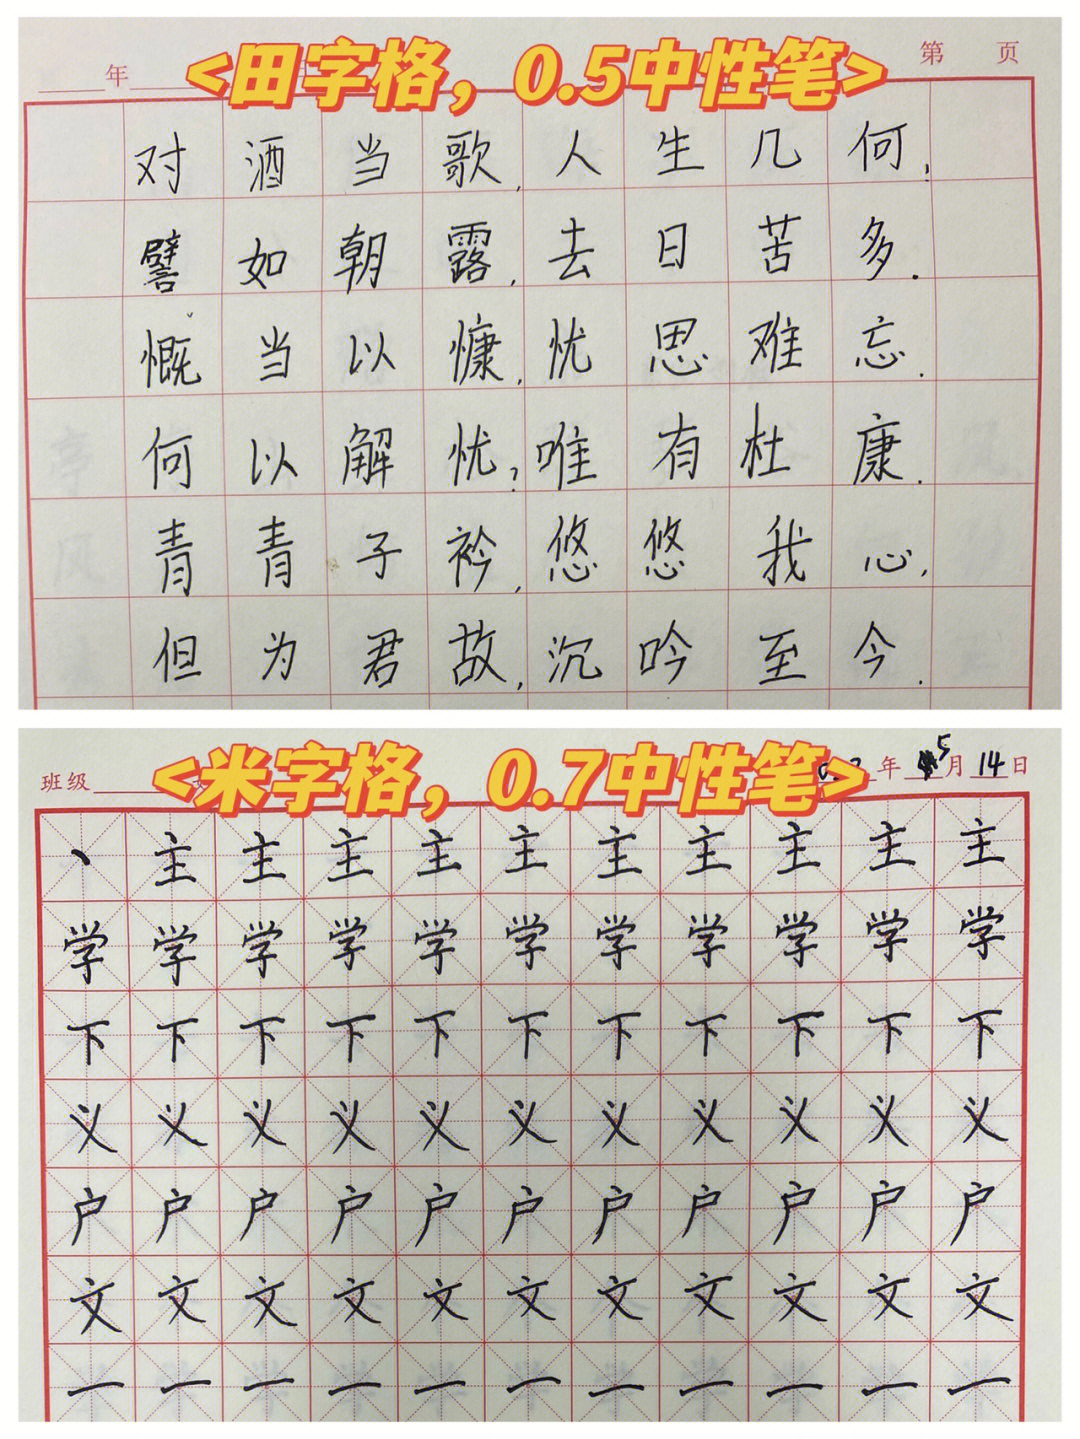 <田字格，0.5中性笔>
年 第 页
对酒当歌,人生几何,
譬如朝露,去日苦多.
慨当以慷,忧思难忘.
何以解忧?唯有杜康.
青青子衿,悠悠我心,
但为君故,沉吟至今.
<米字格，0.7中性笔>
班级 年 5月14日
丶主主主主主主主主主主
学学学学学学学学学学学
下下下下下下下下下下下
义义义义义义义义义义义
户户户户户户户户户户户
文文文文文文文文文文文
一一一一一一一一一一一